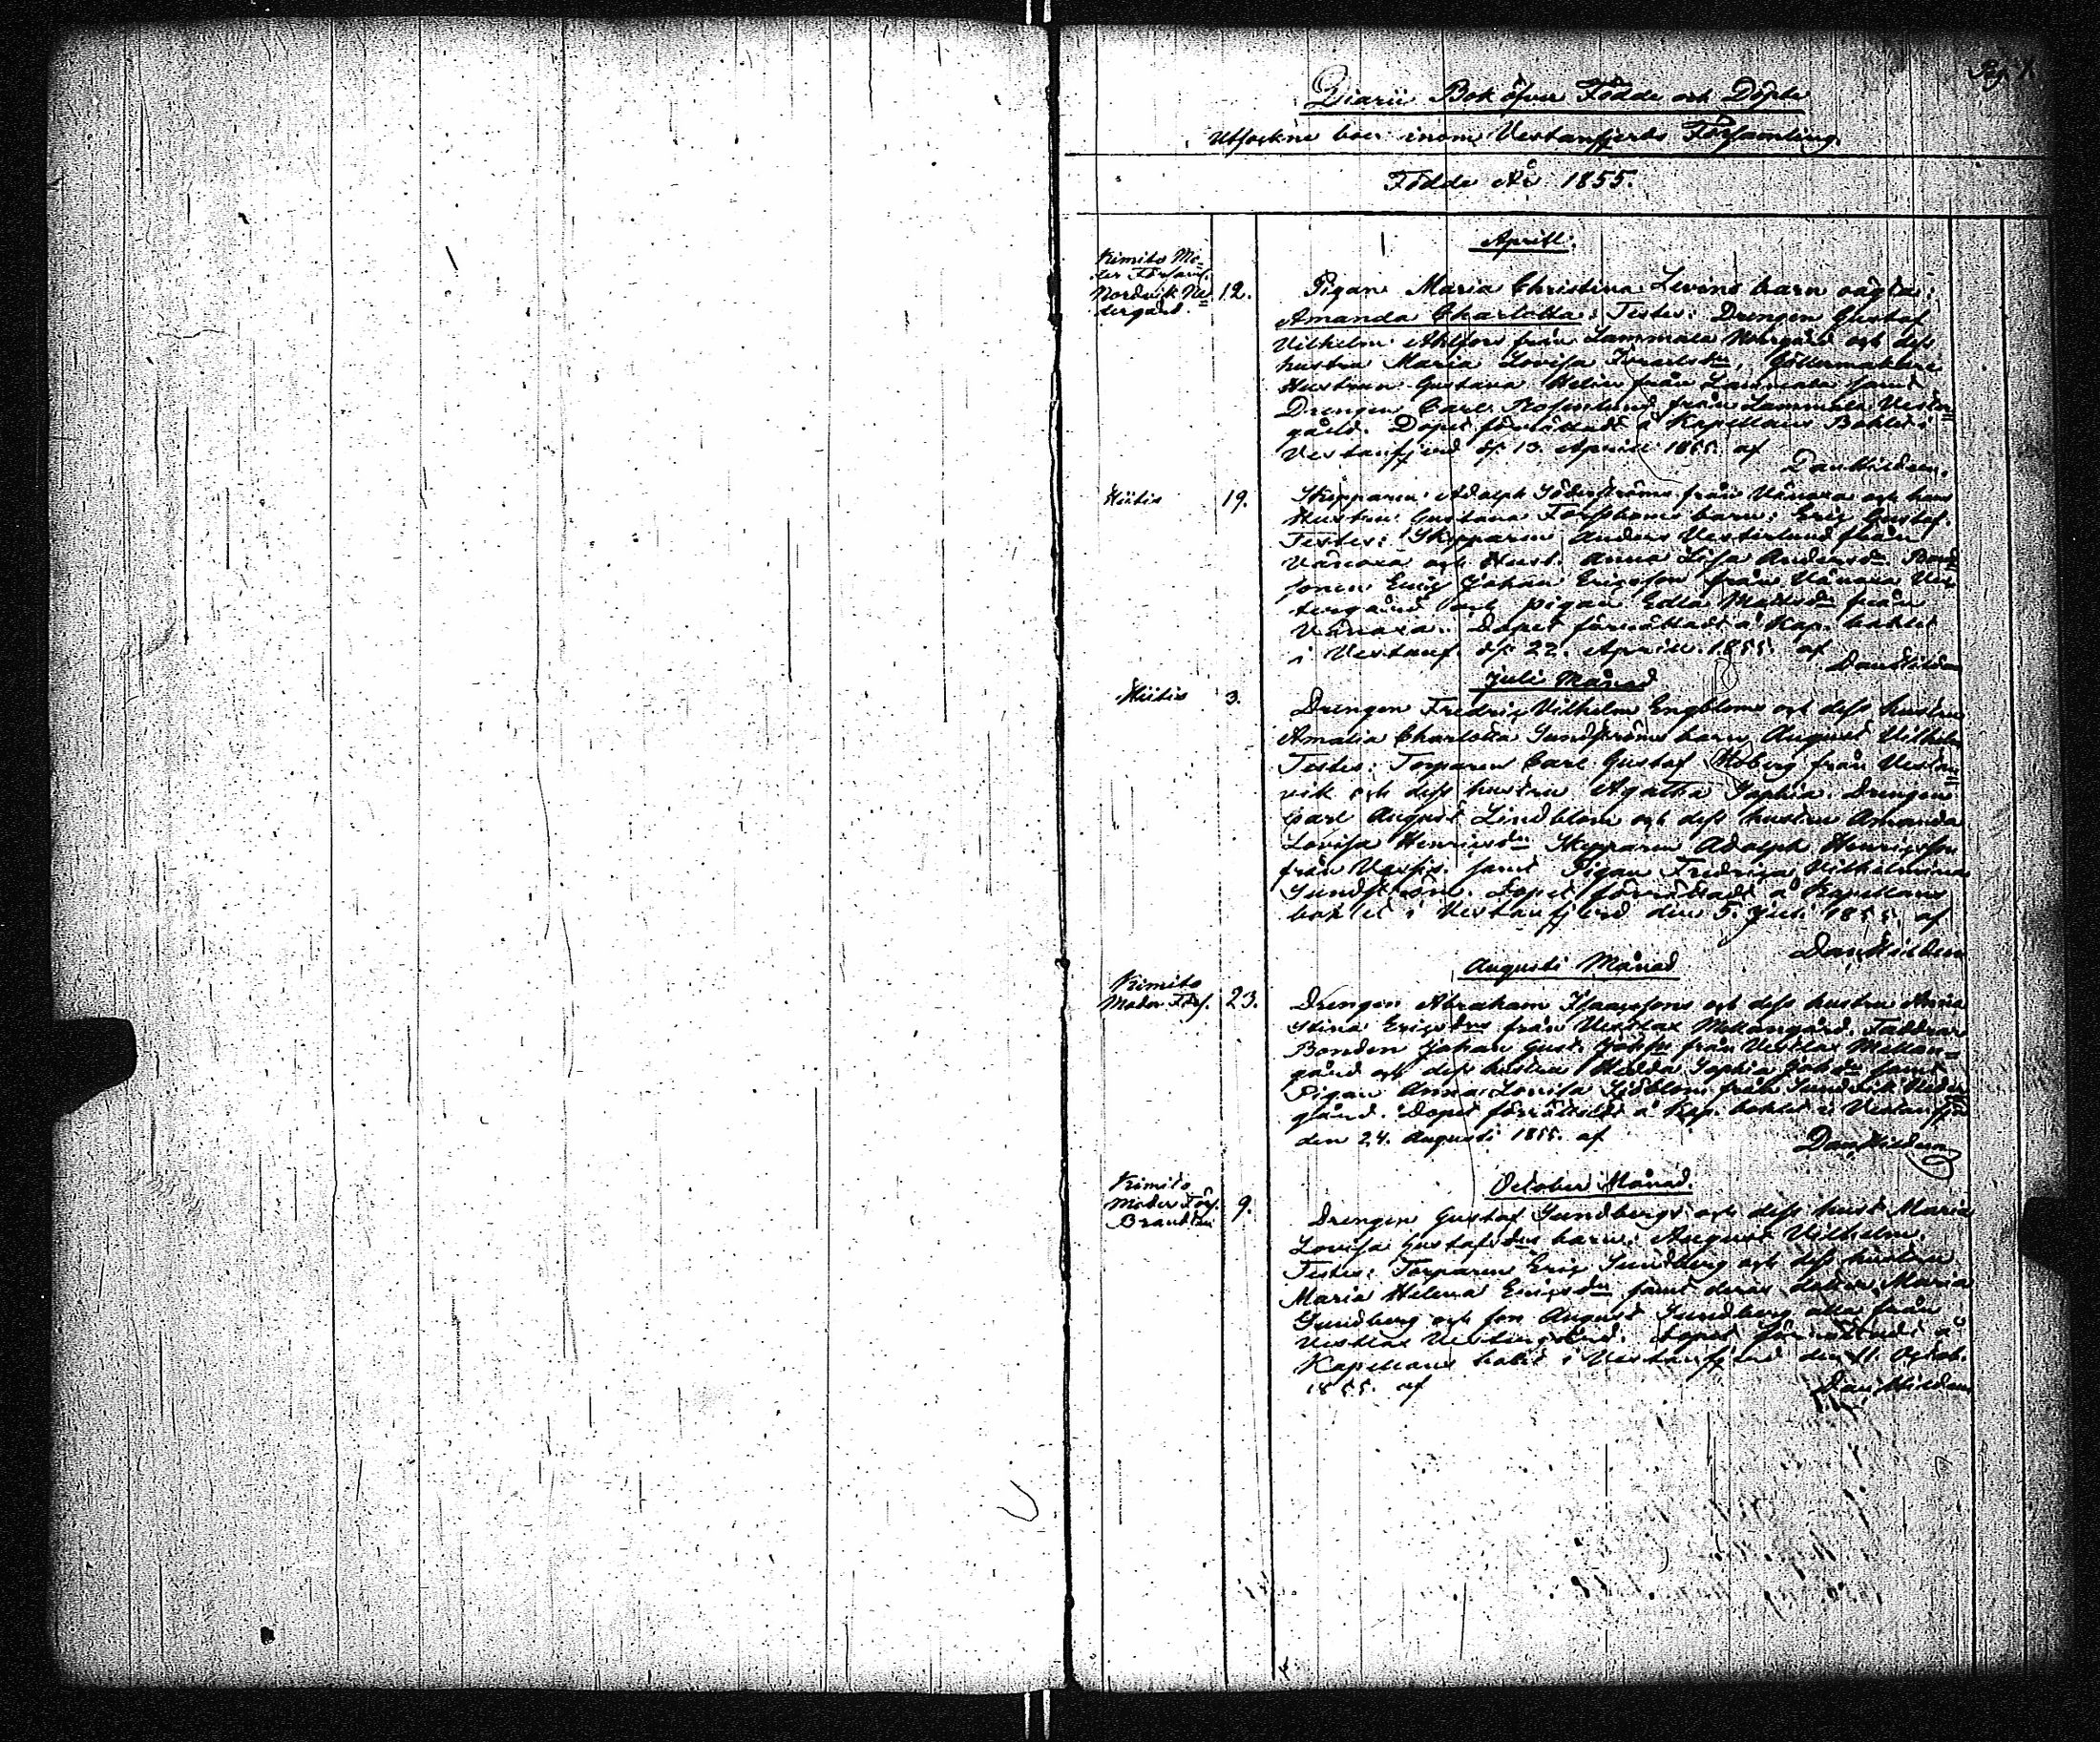 Pag. 1.
Diarii Bok öfver Födde och Döpte
Utsockne boer inom Vestanfjerds Församling.
Födde År 1855.
Aprill.
Kimito Mo-
der Församl.
Nordvik Ne-
dergård.
12.
Pigan Maria Christina Levins barn oägta:
Amanda Charlotta. Testes: Drengen Gustaf
Vilhelm Ahlfors från Lammala Norrgård och dess
hustru Maria Lovisa
Hustrun Gustava Helin från Lammala samt
Drengen Carl Rosenlund från Lammala Vester=
gård. Dopet förrättadt å Kapellans Bohlet i
Vestanfjerd d. 13. Aprill 1855. af
Dan Hildeen.
Hiitis
19.
Skepparen Adolph Söderströms från Vänoxa och hans
Hustru Gustava barn: Eric Gustaf.
Testes: Skepparen Anders Vesterlund från
Vänoxa och Hust. Anna Lisa Andersdr Bond
sonen Eric Johan Ericsson från Vänoxa Ves-
tergård och pigan Edla Mattsdr från
Vänoxa. Dopet förrättadt å Kap. bohlet
i Vestanf. d. 22. Aprill. 1855. af
Dan Hildeen
Juli Månad
Hiitis
3.
Drengen Fredric Vilhelm Engbloms och dess hustru
Amalia Charlotta Sundströms barn, August Vilhelm
Testes: Torparen Carl Gustaf från Vestan=
vik och dess hustru Agatha Sophia. Drengen
Carl August Lindblom och dess hustru Amanda
Lovisa Henricsdr Skepparen Adolph Henricsson
från samt Pigan Fredrica Vilhelmina
Sundström. Dopet förrättadt å Kapellans
bohlet i Vestanfjerd den 5. Juli 1855 af
Dan Hildeen
Augusti Månad
Kimito
Moder Förs.
23.
Drengen Abraham Isaacssons och dess hustru Anna
Stina Ericsdrs från Vestlax Mellangård. Faddrar
Bonden Johan Gust. från Vestlax Mellan=
gård och dess hustru Hedda Sophia samt
Pigan Anna Lovisa från Sundvik Neder
gård. Dopet förrättadt å Kap. bohlet i Vestanfjd
den 24. Augusti 1855. af
Dan Hildeen
October Månad.
Kimito
Moder Förs.
9.
Drengen Gustaf Sundbergs och dess hust. Maria
Lovisa Gustafsdrs barn: August Vilhelm.
Testes: Torparen Eric Sundberg och dess hustru
Maria Helena Ericsdr samt deras dotter Maria
Sundberg och son August Sundberg alla från
Vestlax Vestergård. Dopet förrättadt å
Kapellans bohlet i Vestanfjerd den 11. Octob.
1855. af
Dan Hildeen